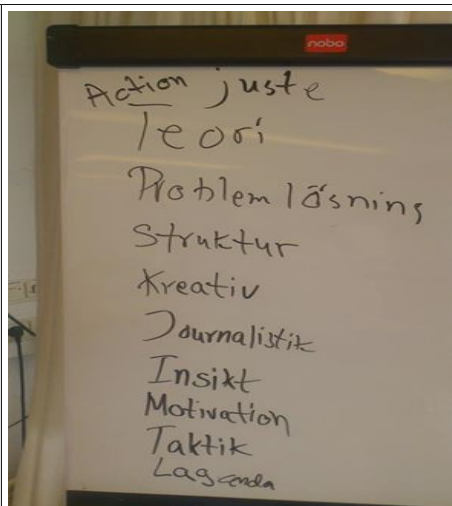 nobo
Action juste
Teori
Problem lösning
Struktur
Kreativ
Journalistik
Insikt
Motivation
Taktik
Lagcenda